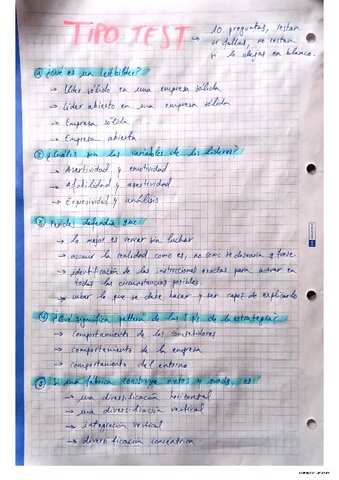 TIPO TEST → 10 preguntas, restan
si fallas, no restan
si lo dejas en blanco.
① ¿Qué es un leitbilder?
→ Líder sólido en una empresa sólida
→ Líder abierto en una empresa sólida
→ Empresa sólida
→ Empresa abierta
② ¿Cuáles son las variables de los líderes?
→ Asertividad y emotividad
→ Afabilidad y asertividad
→ Expresividad y análisis
③ Pericles defendía que
→ lo mejor es vencer sin luchar
→ asumir la realidad como es, no como te desearía q fuese.
→ identificación de las instrucciones exactas para activar en
todas las circunstancias posibles.
→ saber lo que se debe hacer y ser capaz de explicarlo
④ ¿Qué significa pattern de las 5 p's de la estrategia?
→ comportamiento de los competidores
→ comportamiento de la empresa
→ comportamiento del entorno
⑤ Si una fábrica construye motos y es:
→ una diversificación horizontal
→ una diversificación vertical
→ integración vertical
→ diversificación concéntrica